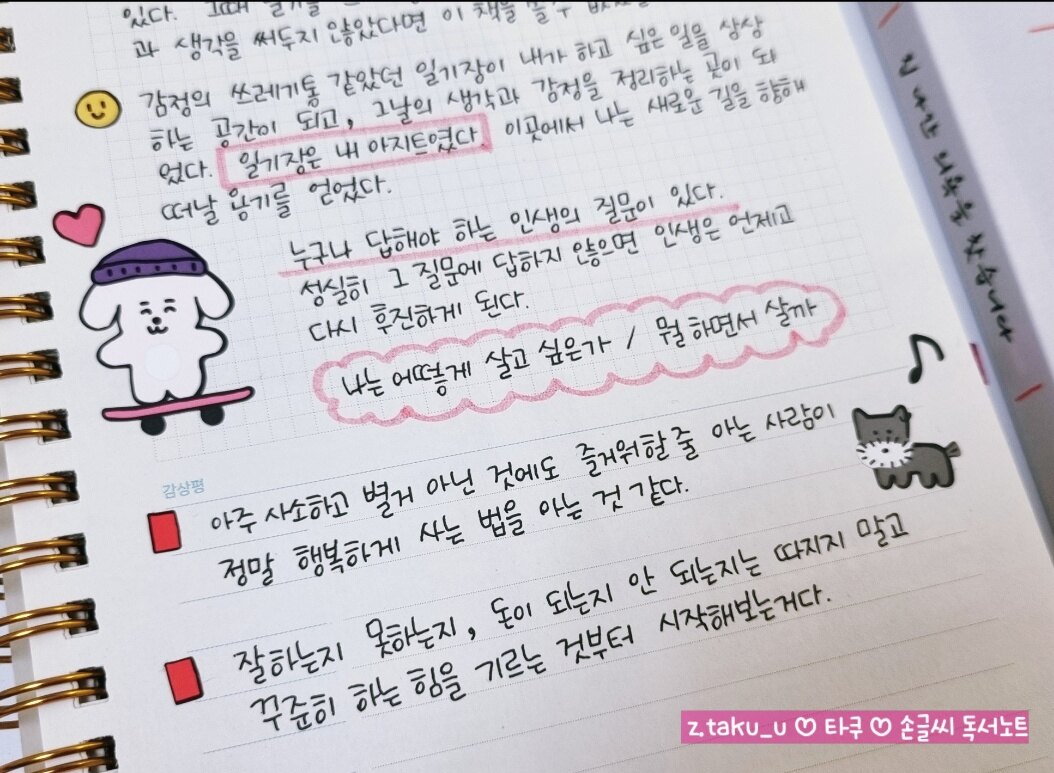 있다. 그때 일기를
과 생각을 써두지 않았다면 이 책을 쓸 수 없었을
감정의 쓰레기통 같았던 일기장이 내가 하고 싶은 일을 상상
하는 공간이 되고, 그날의 생각과 감정을 정리하는 곳이 되
었다. 일기장은 내 아지트였다. 이곳에서 나는 새로운 길을 향해
떠날 용기를 얻었다.
누구나 답해야 하는 인생의 질문이 있다.
성실히 그 질문에 답하지 않으면 인생은 언제고
다시 후진하게 된다.
나는 어떻게 살고 싶은가 / 뭘 하면서 살까
감상평
아주 사소하고 별거 아닌 것에도 즐거워할 줄 아는 사람이
정말 행복하게 사는 법을 아는 것 같다.
잘하는지 못하는지, 돈이 되는지 안 되는지는 따지지 말고
꾸준히 하는 힘을 기르는 것부터 시작해보는거다.
찾습니다
z.taku_u ♡ 타쿠 ♡ 손글씨 독서노트